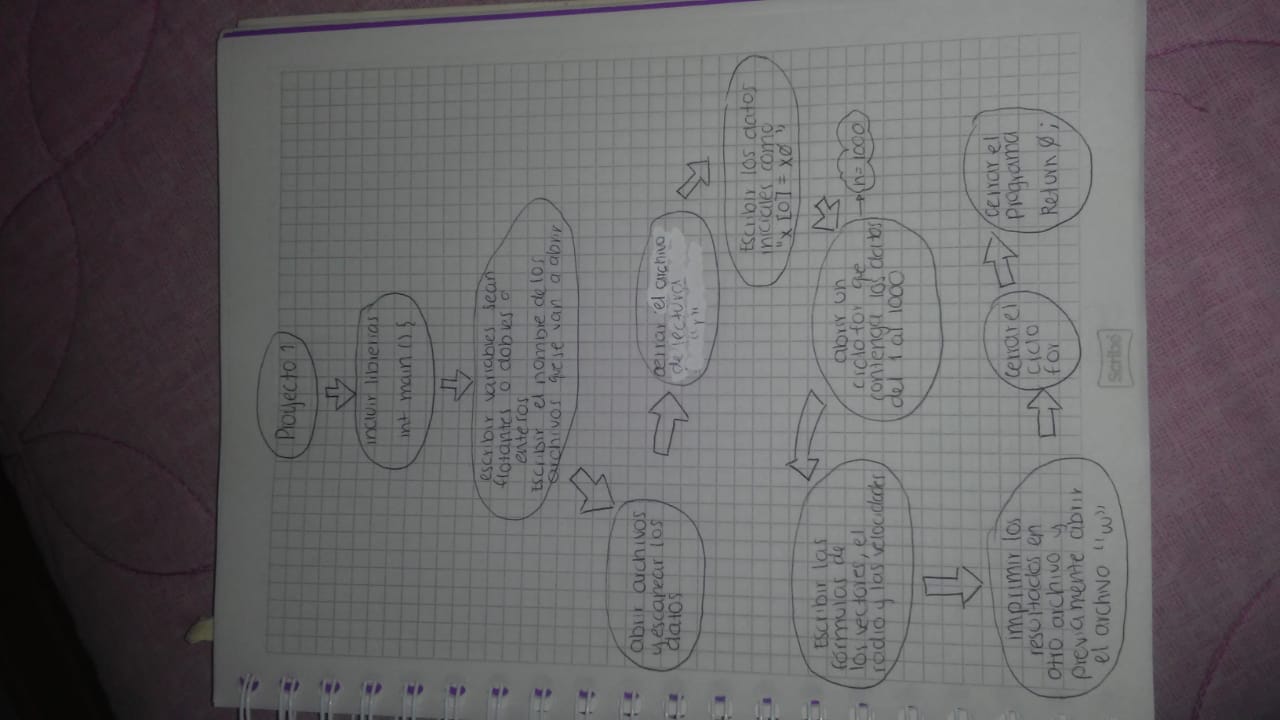 Proyecto 1
incluir librerias
int main () {
escribir variables sean
flotantes o dobles o
enteros
Escribir el nombre de los
archivos que se van a abrir
abrir archivos
y escanear los
datos
cerrar el archivo
de lectura
"r"
Escribir los datos
iniciales como
"x [0] = x0"
n=1000
abrir un
ciclo for que
contenga los datos
del 1 al 1000
Escribir las
formulas de
los vectores, el
radio y las velocidades
imprimir los
resultados en
otro archivo y
previamente abrir
el archivo "w"
Cerrar el
ciclo
for
cerrar el
programa
Return 0;
Scribe